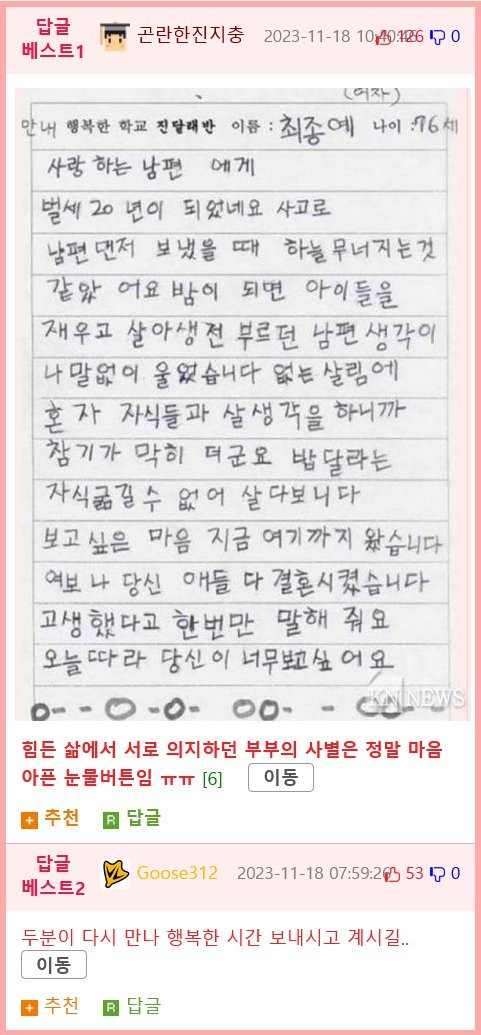 답글
베스트1
곤란한진지충
2023-11-18 10:40:46
126
0
(여자)
안내 행복한 학교 진달래반 이름 : 최종예 나이 : 76세
사랑 하는 남편 에게
벌세 20 년이 되었네요 사고로
남편 댄저 보냈을 때 하늘 무너지는것
같았 어요 밤이 되면 아이들을
재우고 살아생전 부르던 남편 생각이
나 말없이 울었습니다 없는 살림에
혼자 자식들과 살생각을 하니까
참기가 막히 더군요 밥달라는
자식굶길수 없어 살다보니다
보고싶은 마음 지금 여기까지 왔습니다
여보 나 당신 애들 다 결혼시켰습니다
고생했다고 한번만 말해 줘요
오늘따라 당신이 너무보고싶어요
KN NEWS
힘든 삶에서 서로 의지하던 부부의 사별은 정말 마음
아픈 눈물버튼임 ㅠㅠ [6] 이동
+ 추천 R 답글
답글
베스트2
Goose312
2023-11-18 07:59:26
53
0
두분이 다시 만나 행복한 시간 보내시고 계시길..
이동
+ 추천 R 답글